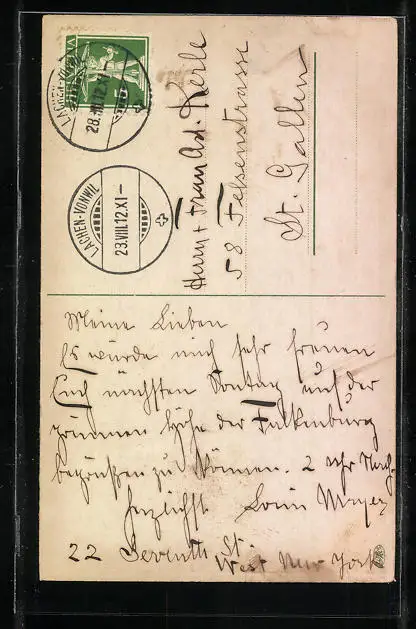 LACHEN-VONWIL
28.VIII.12.XI-
LACHEN-VONWIL
23.VIII.12.XI-
Herrn & Frau Ad. Kerle
58 Felsenstrasse
St. Gallen
Meine Lieben
Es würde mich sehr freuen
Euch nächsten Sonntag auf der
Höhe der Falkenburg
begrüßen zu können. 2 Uhr Nach-
herzlichst Louis Mayer
22 Seventh St.
West New York